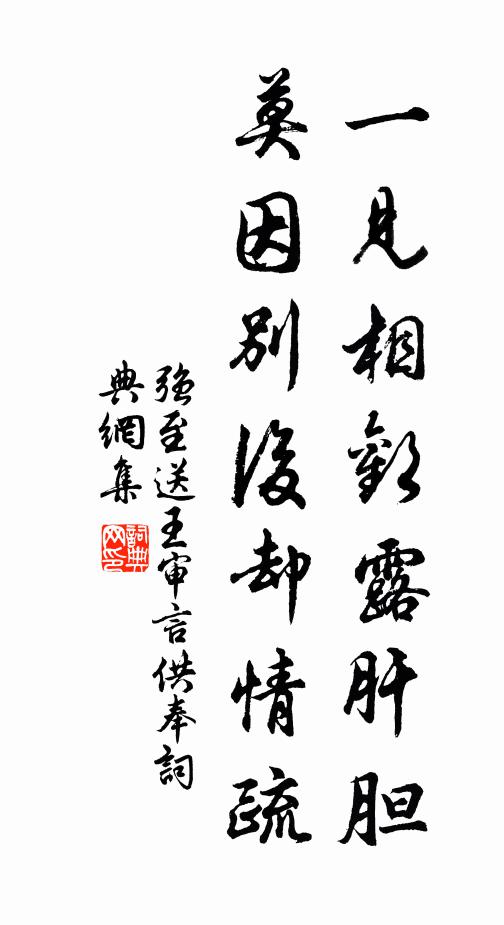 一見相歡露肝胆
莫因別後却情疏
强至送王审言供奉詞
典網集
詞典
网印